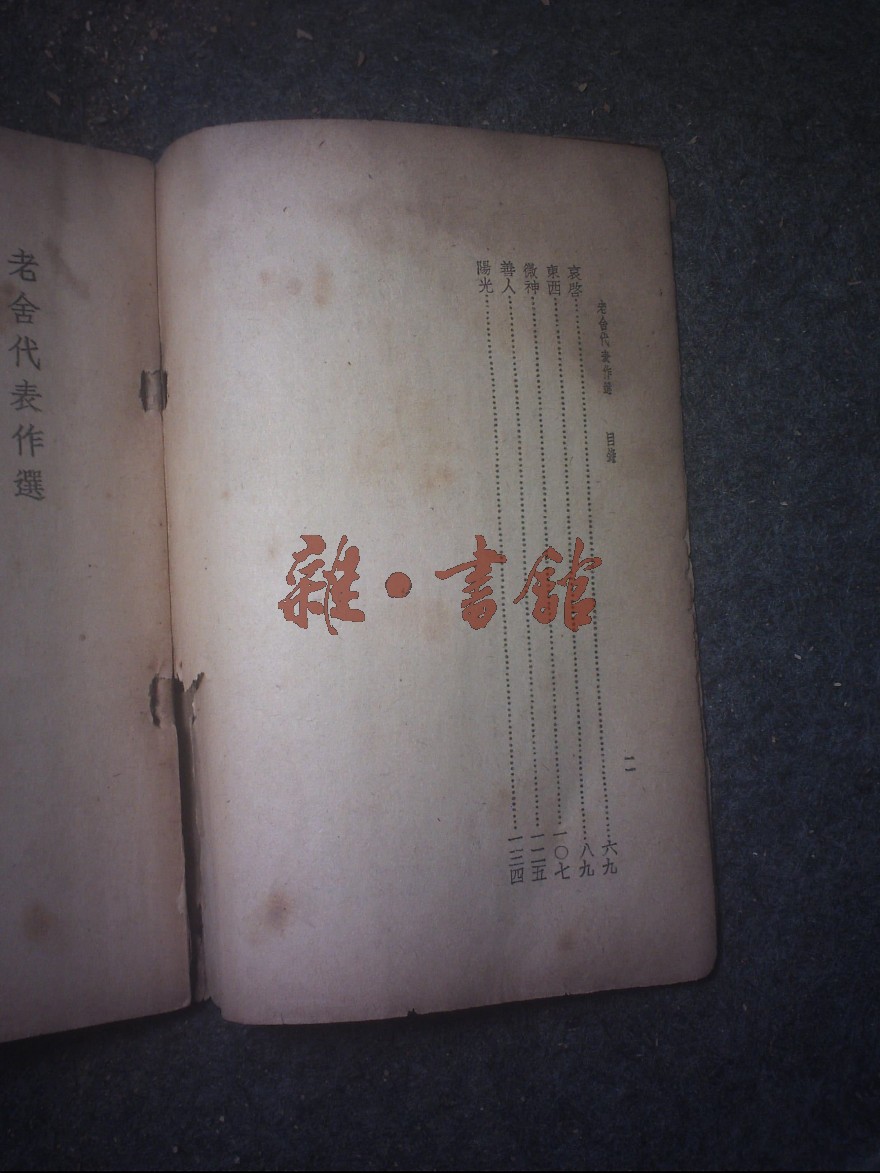 老舍代表作選 目錄 二
哀啓……六九
東西……八九
微神……一〇七
善人……一二五
陽光……一三四
老舍代表作選
雜·書館